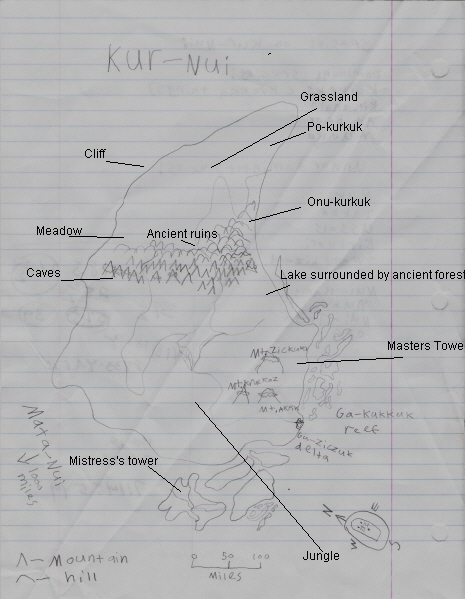 Kur-Nui
Grassland
Po-kurkuk
Cliff
Onu-kurkuk
Meadow
Ancient ruins
Caves
Lake surrounded by ancient forest
Masters Towe
Mt. Zickuki
Mt. Akmk
Ga-kukkuk
reef
Ga-ziczuk
delta
Mata-Nui
1000
miles
Mistress's tower
Jungle
N
E
S
W
Mountain
hill
0 50 100
Miles